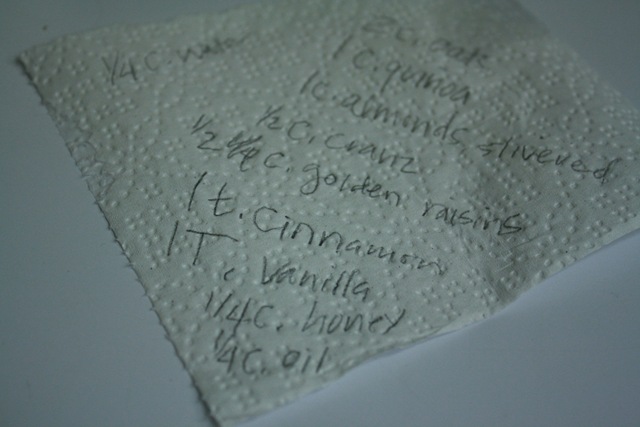 1/4 C. water
2 C. oats
1 C. quinoa
1 C. almonds, slivered
1/2 C. cranz
1/2 C. golden raisins
1 t. cinnamon
1 T. vanilla
1/4 C. honey
1/4 C. oil